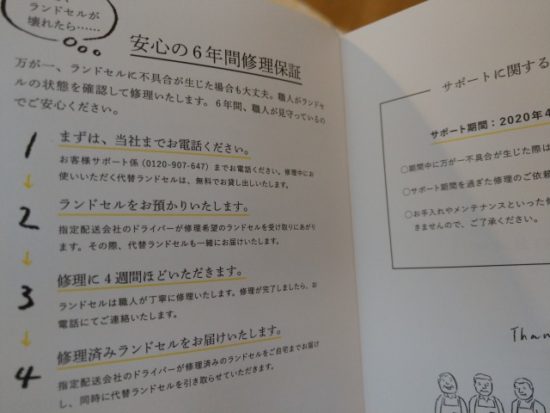 ランドセルが
壊れたら……
安心の6年間修理保証
万が一、ランドセルに不具合が生じた場合も大丈夫。職人がランドセ
ルの状態を確認して修理いたします。6年間、職人が見守っているの
でご安心ください。
1 まずは、当社までお電話ください。
お客様サポート係（0120-907-647）までお電話ください。修理中にお
使いいただく代替ランドセルは、無料でお貸し出しいたします。
2 ランドセルをお預かりいたします。
指定配送会社のドライバーが修理希望のランドセルを受け取りにあが
ります。その際、代替ランドセルも一緒にお届けいたします。
3 修理に4週間ほどいただきます。
ランドセルは職人が丁寧に修理いたします。修理が完了しましたら、お
電話にてご連絡いたします。
4 修理済みランドセルをお届けいたします。
指定配送会社のドライバーが修理済みのランドセルをご自宅までお届け
し、同時に代替ランドセルを引き取らせていただきます。
サポートに関する
サポート期間：2020年4
○期間中に万が一不具合が生じた際は
○サポート期間を過ぎた修理のご依頼
○お手入れやメンテナンスといった修
きませんので、ご了承ください。
Than